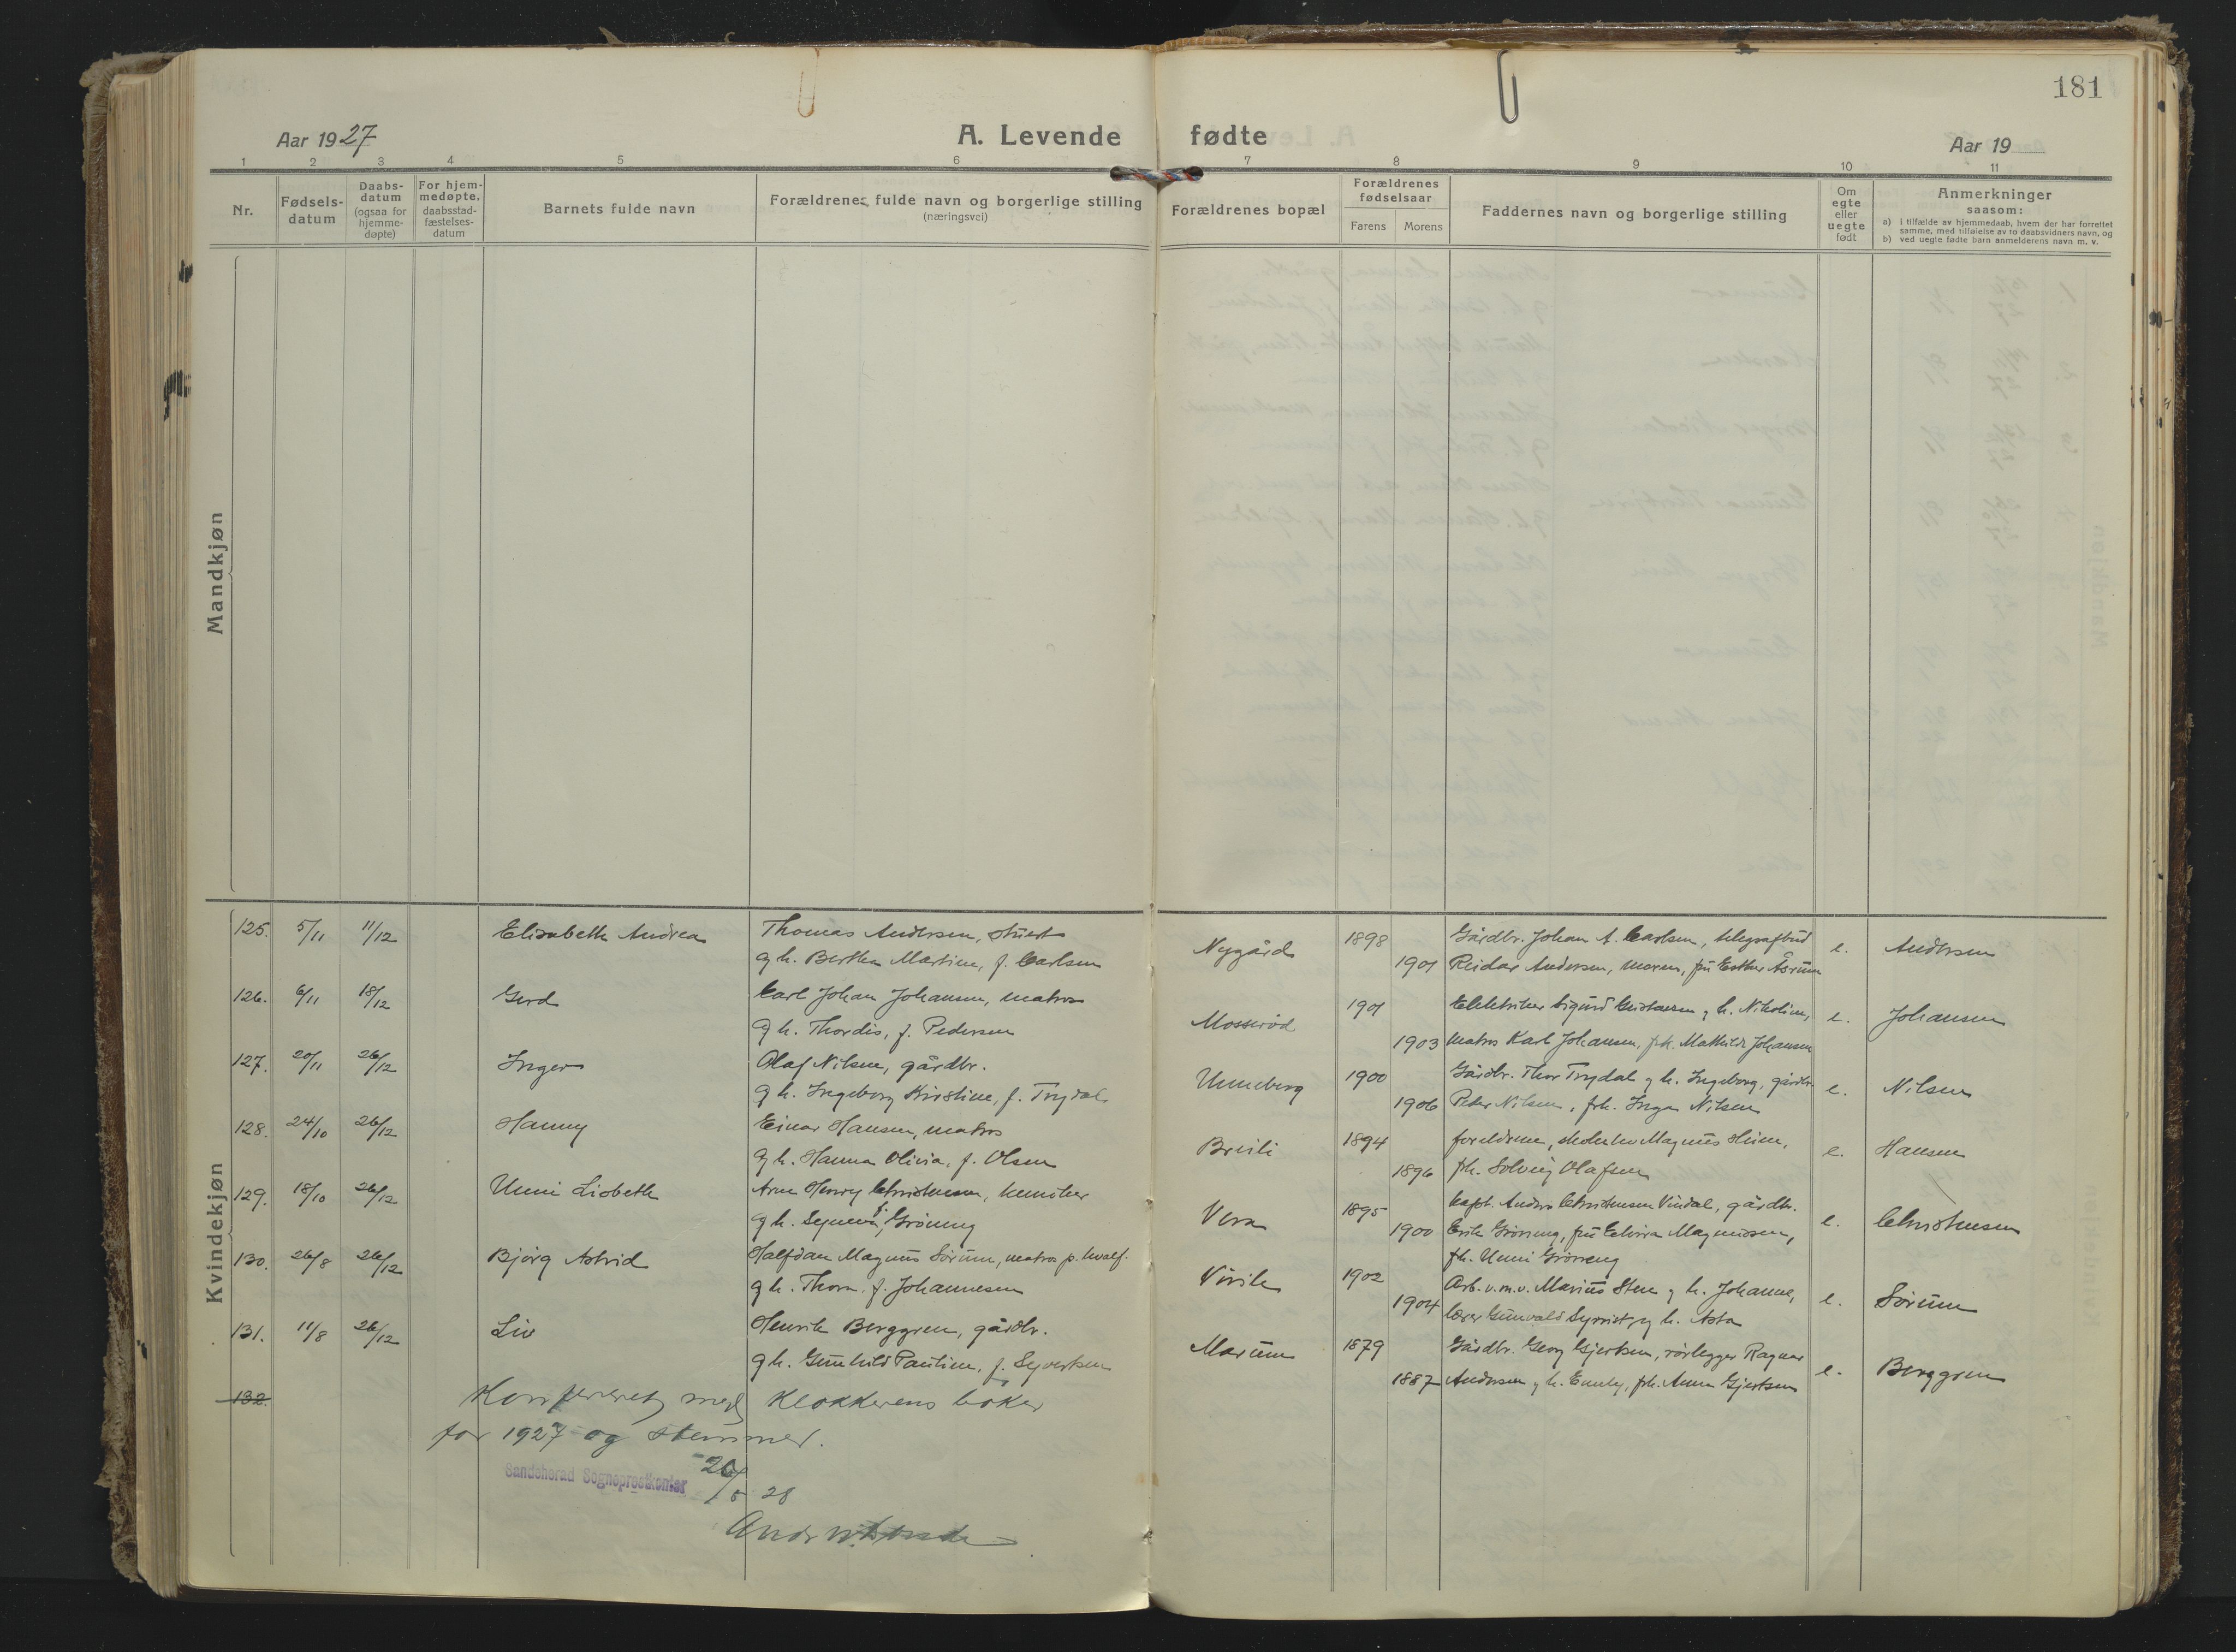 181
Aar 1927
A. Levende fødte
Aar 19
1 2 3 4 5 6 7 8 9 10 11
Nr.
Fødsels-
datum
Daabs-
datum
(ogsaa for
hjemme-
døpte)
For hjem-
medøpte,
daabsstad-
fæstelses-
datum
Barnets fulde navn
Forældrenes fulde navn og borgerlige stilling
(næringsvei)
Forældrenes bopæl
Forældrenes
fødselsaar
Farens Morens
Faddernes navn og borgerlige stilling
Om
egte
eller
uegte
født
Anmerkninger
saasom:
a) i tilfælde av hjemmedaab, hvem der har forrettet
samme, med tilføielse av to daabsvidners navn, og
b) ved uegte fødte barn anmelderens navn m. v.
Mandkjøn
Kvindekjøn
125. 5/11 11/12 Elisabeth Andrea Thomas Andersen, stuert Nygård 1898 Gårdbr. Johan A. Carlsen, telegrafbud e. Andersen
og h. Berthea Martine, f. Carlsen 1901 Reidar Andersen, moren, fru Esther Åsrum
126. 6/11 18/12 Gerd Carl Johan Johansen, matros Mosserød 1901 Elektriker Sigurd Gustavsen og h. Nikoline, e. Johansen
og h. Thordis, f. Pedersen 1903 matros Karl Johansen, frk. Mathilde Johansen
127. 20/11 26/12 Inger Olaf Nilsen, gårdbr. Unneberg 1900 Gårdbr. Thor Trydal og h. Ingeborg, gårdbr. e. Nilsen
og h. Ingeborg Kristine, f. Trydal 1906 Peter Nilsen, frk. Inga Nilsen
128. 24/10 26/12 Hanny Einar Hansen, matros Breili 1894 foreldrene, Magnus e. Hansen
og h. Hanna Olivia, f. Olsen 1896 frk. Solveig Olafsen
129. 18/10 26/12 Unni Lisbeth Arne Henry Christensen, kemiker Vera 1895 Kapt. Anders Christensen Vindal, gårdbr. e. Christensen
og h. f. Grönseng 1900 Erik Grönseng, fru Elvira Magnussen,
frk. Unni Grönseng
130. 26/8 26/12 Bjørg Astrid Halfdan Magnus Sørum, matros p. hvalf. Virik 1902 Arb. v. m. v. Marius Sten og h. Johanne, e. Sørum
og h. Thora f. Johannesen 1904 lærer Gunvald og h. Asta
131. 11/8 26/12 Liv Henrik Berggren, gårdbr. Marum 1879 Gårdbr. Georg Gjertsen, rørlegger Ragnar e. Berggren
og h. Gunhild Pauline, f. Syvertsen 1887 Andersen og h. Emely, frk. Anna Gjertsen
132.
Konfereret med Klokkerens bøker
for 1927 og stemmer.
Sandeherad Sogneprestkontor 26/5 28